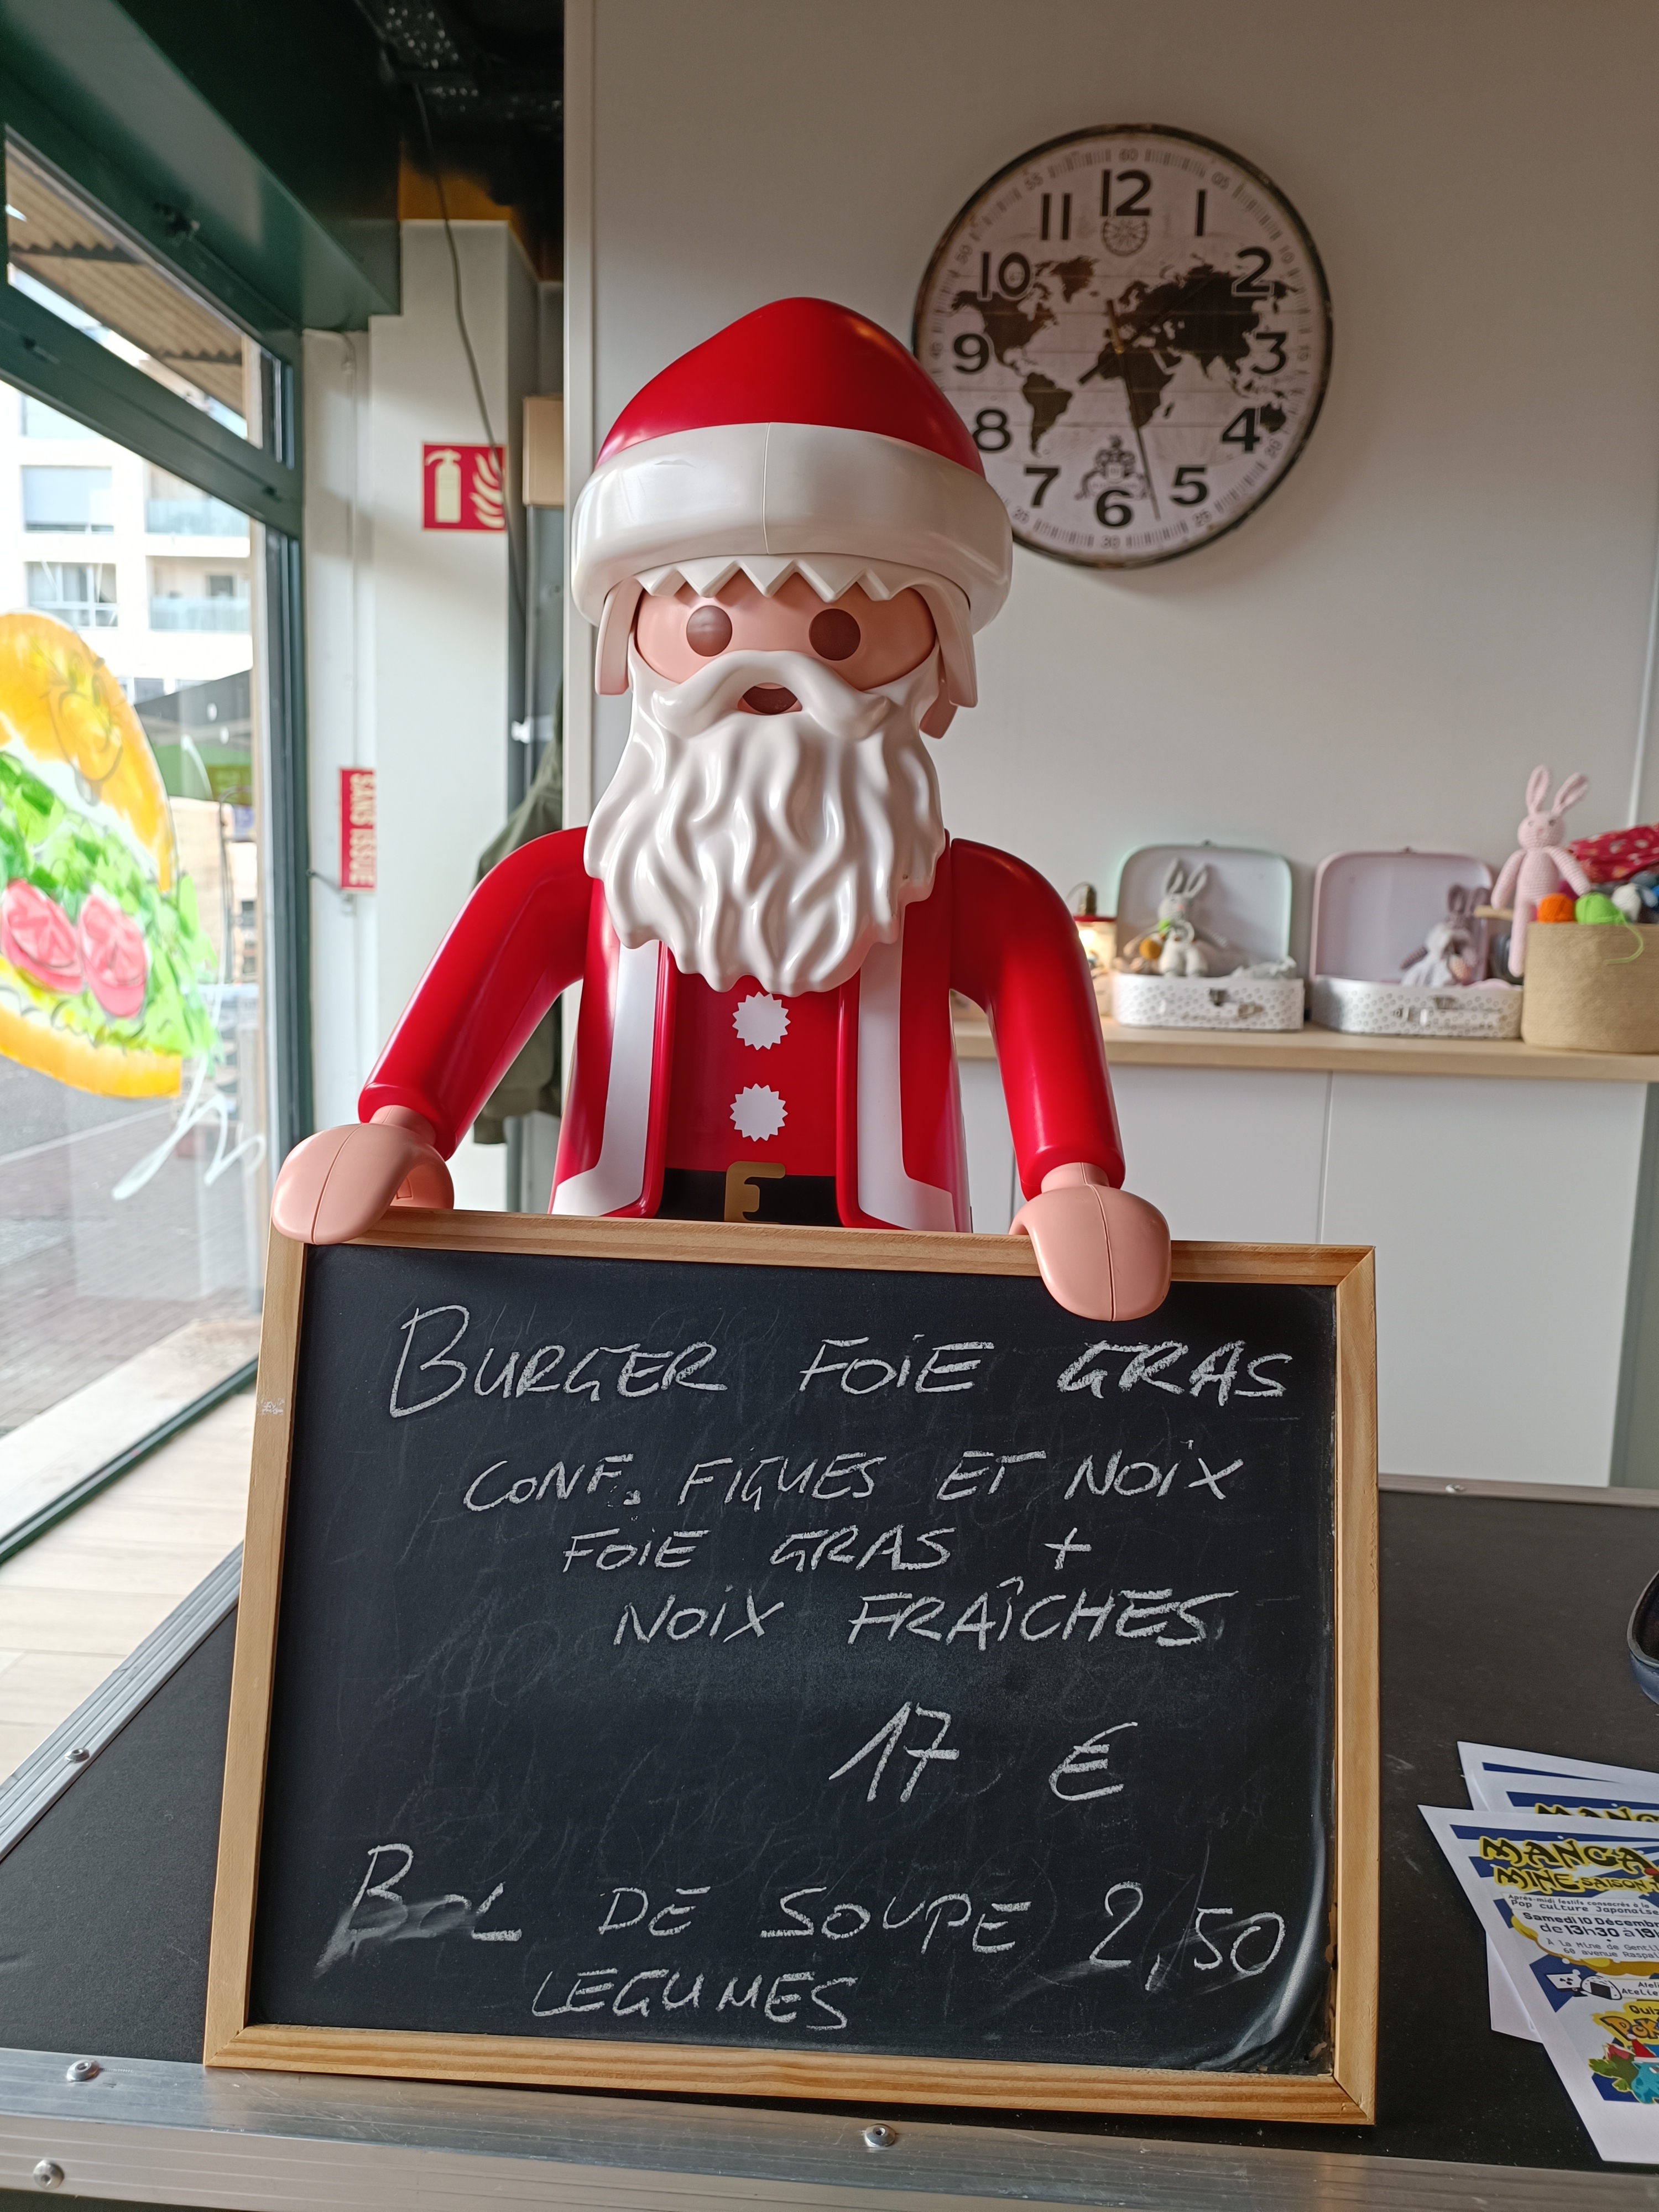 60
12
11
1
10
2
9
3
8
4
7
5
6
30
SANS ISSUE
BURGER FOIE GRAS
CONF. FIGUES ET NOIX
FOIE GRAS +
NOIX FRAÎCHES
17 €
BOL DE SOUPE 2,50
LEGUMES
MANGA
MANGA
MINE SAISON
Après-midi festifs consacrés à la
Pop culture Japonaise
Samedi 10 Décembre
de 13h30 à
À la Mine de Gentil
68 avenue Raspai
Quiz